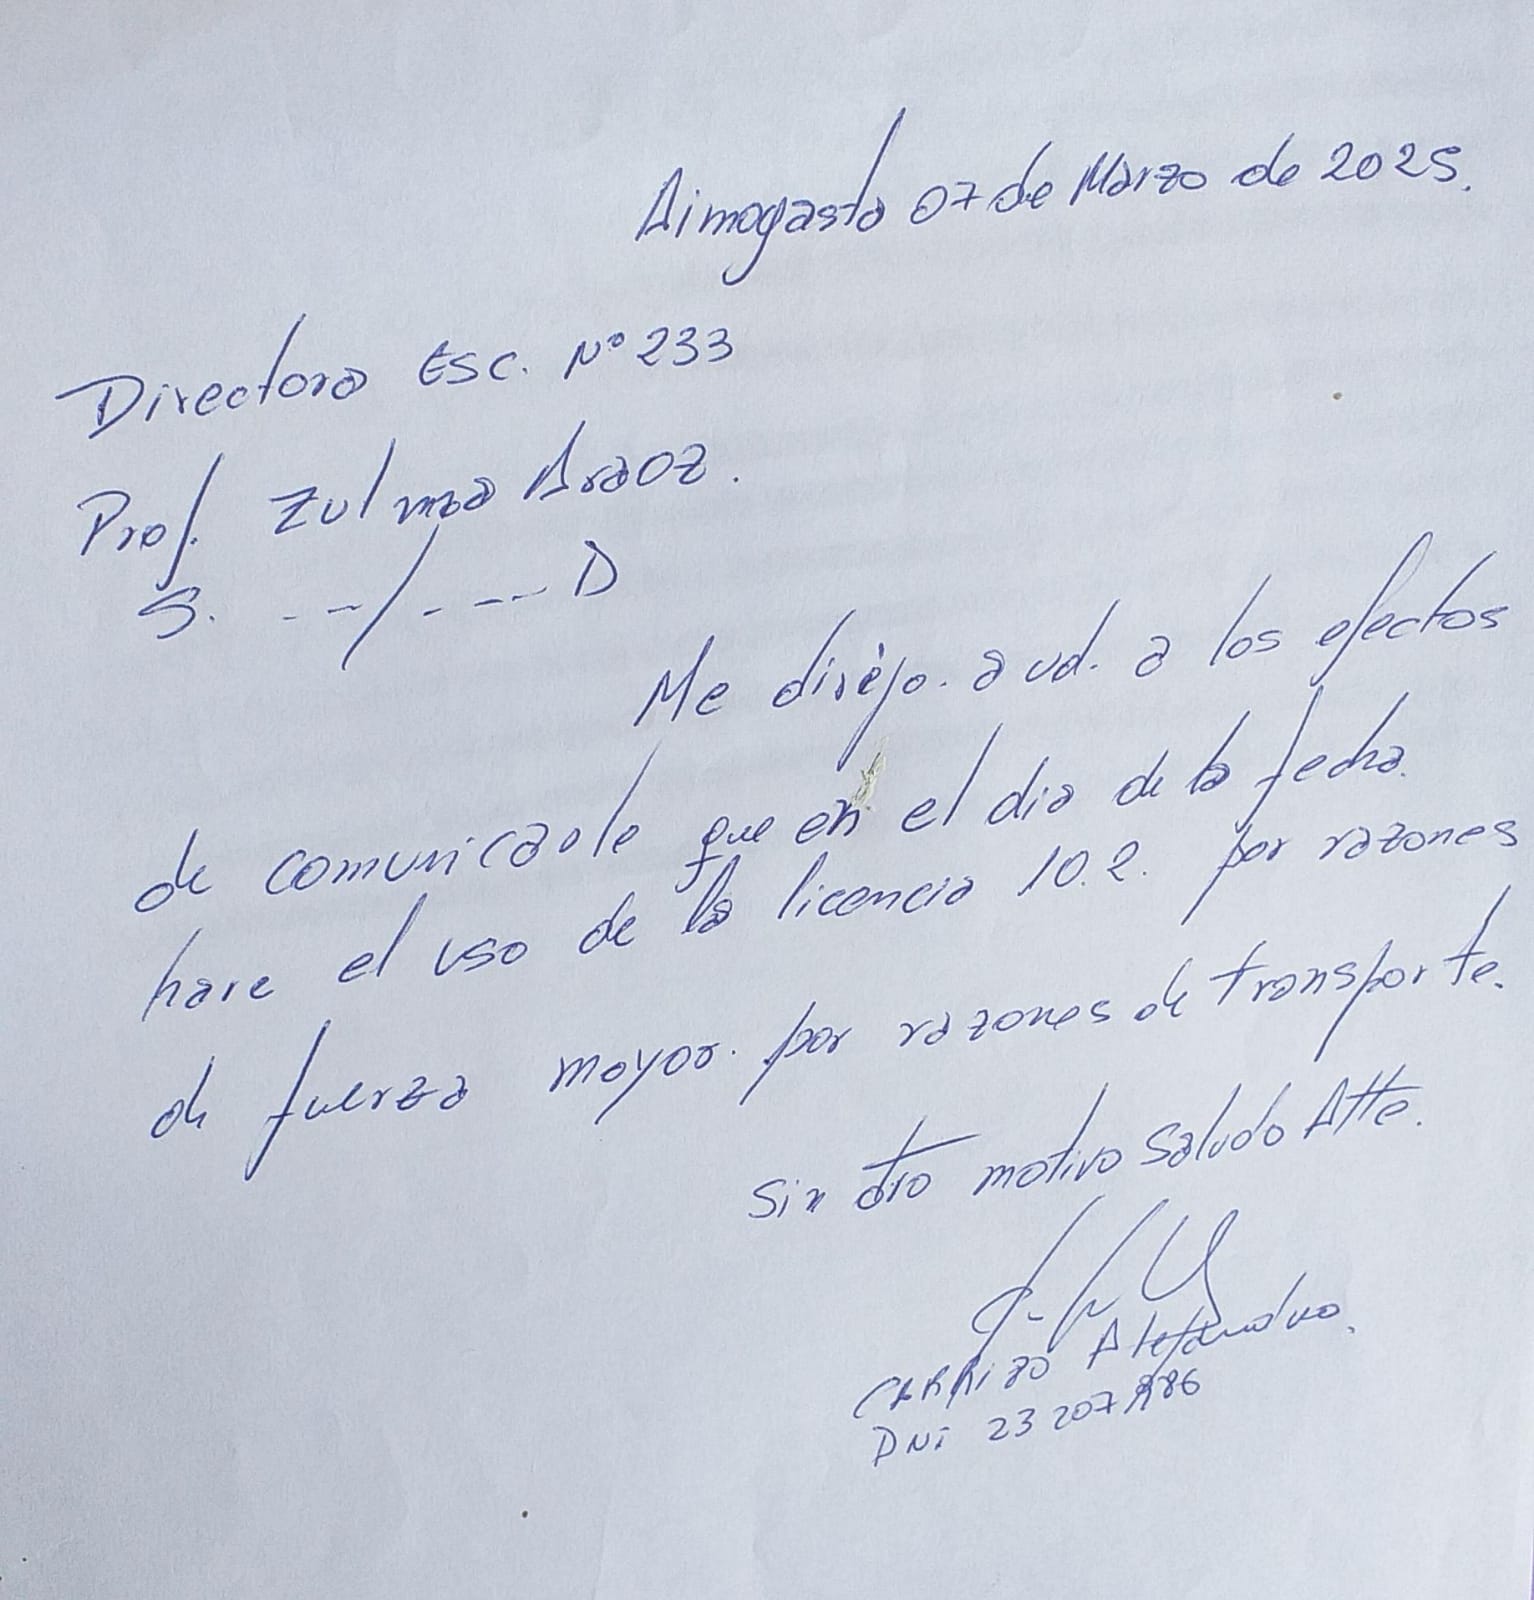 Aimogasta 07 de Marzo de 2025.
Directora Esc. N° 233
Prof. Zulma Araoz.
S. --/---- D
Me dirijo. a ud. a los efectos
de comunicaole que en el dia de la fecha.
hare el uso de la licencia 10.2. por razones
de fuerza mayor. por razones de transporte.
Sin otro motivo Saludo Atte.
CARRizo Alejandro.
DNi 23 207